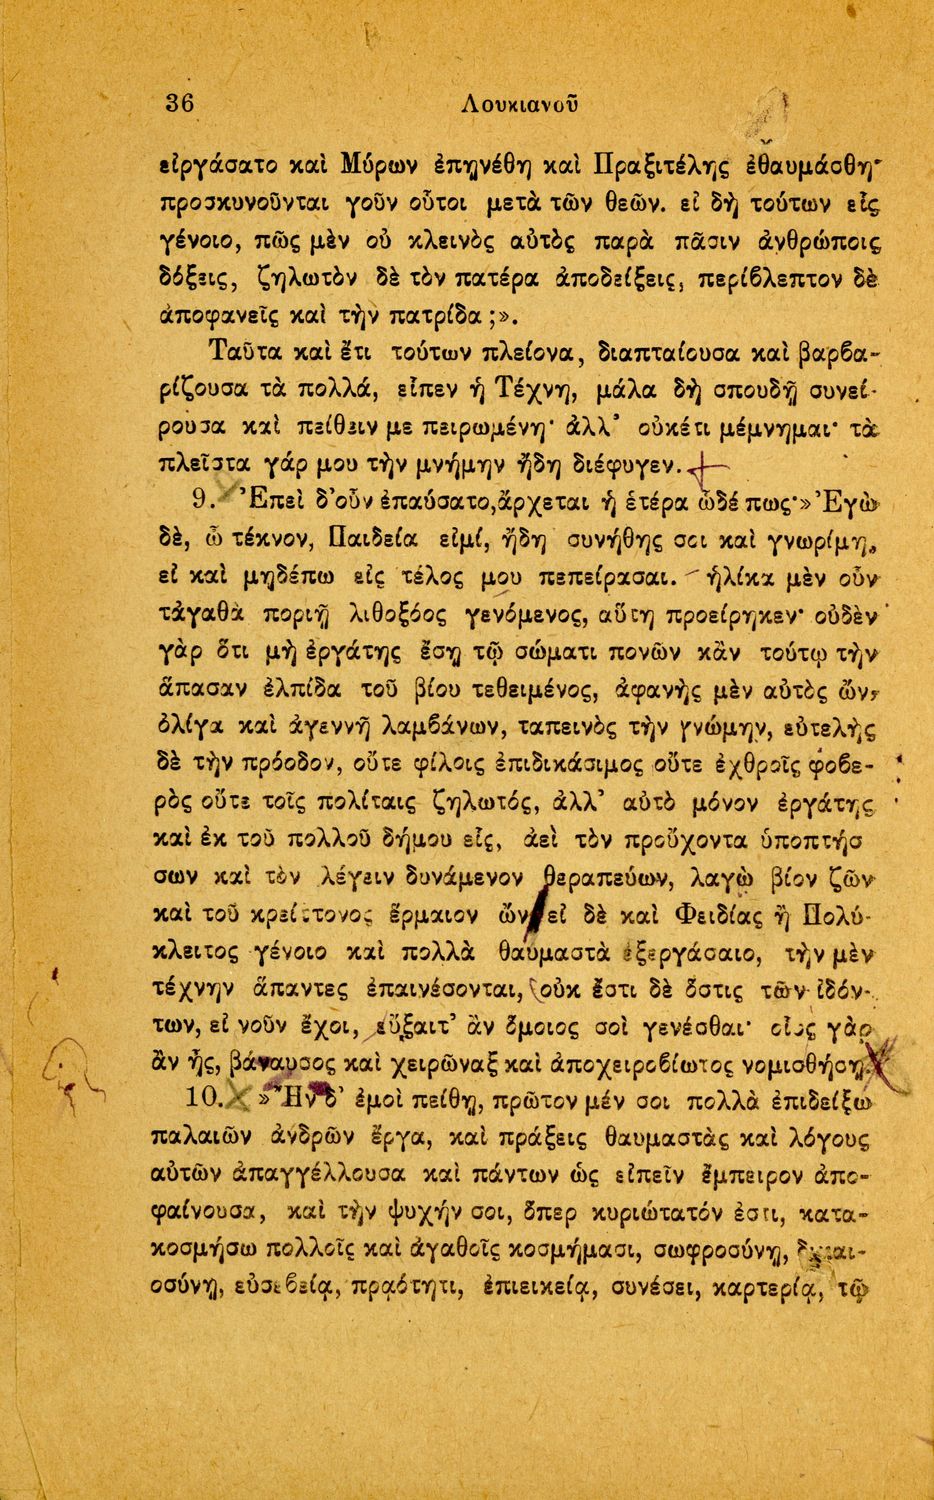 36 Λουκιανοῦ
εἰργάσατο καὶ Μύρων ἐπῃνέθη καὶ Πραξιτέλης ἐθαυμάσθη·
προσκυνοῦνται γοῦν οὗτοι μετὰ τῶν θεῶν. εἰ δὴ τούτων εἷς
γένοιο, πῶς μὲν οὐ κλεινὸς αὐτὸς παρὰ πᾶσιν ἀνθρώποις
δόξεις, ζηλωτὸν δὲ τὸν πατέρα ἀποδείξεις, περίβλεπτον δὲ
ἀποφανεῖς καὶ τὴν πατρίδα ;».
Ταῦτα καὶ ἔτι τούτων πλείονα, διαπταίουσα καὶ βαρβα-
ρίζουσα τὰ πολλά, εἶπεν ἡ Τέχνη, μάλα δὴ σπουδῇ συνεί-
ρουσα καὶ πείθειν με πειρωμένη· ἀλλ’ οὐκέτι μέμνημαι· τὰ
πλεῖστα γάρ μου τὴν μνήμην ἤδη διέφυγεν.
9. Ἐπεὶ δ’οὖν ἐπαύσατο,ἄρχεται ἡ ἑτέρα ὧδέ πως·»Ἐγὼ
δὲ, ὦ τέκνον, Παιδεία εἰμί, ἤδη συνήθης σοι καὶ γνωρίμη,
εἰ καὶ μηδέπω εἰς τέλος μου πεπείρασαι. ἡλίκα μὲν οὖν
τἀγαθὰ ποριῇ λιθοξόος γενόμενος, αὕτη προείρηκεν· οὐδὲν
γὰρ ὅτι μὴ ἐργάτης ἔσῃ τῷ σώματι πονῶν κἂν τούτῳ τὴν
ἅπασαν ἐλπίδα τοῦ βίου τεθειμένος, ἀφανὴς μὲν αὐτὸς ὤν,
ὀλίγα καὶ ἀγεννῆ λαμβάνων, ταπεινὸς τὴν γνώμην, εὐτελὴς
δὲ τὴν πρόοδον, οὔτε φίλοις ἐπιδικάσιμος οὔτε ἐχθροῖς φοβε-
ρὸς οὔτε τοῖς πολίταις ζηλωτός, ἀλλ’ αὐτὸ μόνον ἐργάτης
καὶ ἐκ τοῦ πολλοῦ δήμου εἷς, ἀεὶ τὸν προὔχοντα ὑποπτήσ
σων καὶ τὸν λέγειν δυνάμενον θεραπεύων, λαγὼ βίον ζῶν
καὶ τοῦ κρείττονος ἕρμαιον ὤν εἰ δὲ καὶ Φειδίας ἢ Πολύ-
κλειτος γένοιο καὶ πολλὰ θαυμαστὰ ἐξεργάσαιο, τὴν μὲν
τέχνην ἅπαντες ἐπαινέσονται, οὐκ ἔστι δὲ ὅστις τῶν ἰδόν-
των, εἰ νοῦν ἔχοι, εὔξαιτ’ ἂν ὅμοιος σοὶ γενέσθαι· οἷος γὰρ
ἂν ᾖς, βάναυσος καὶ χειρῶναξ καὶ ἀποχειροβίωτος νομισθήσῃ.
10. »Ἢν δ’ ἐμοὶ πείθῃ, πρῶτον μέν σοι πολλὰ ἐπιδείξω
παλαιῶν ἀνδρῶν ἔργα, καὶ πράξεις θαυμαστὰς καὶ λόγους
αὐτῶν ἀπαγγέλλουσα καὶ πάντων ὡς εἰπεῖν ἔμπειρον ἀπο-
φαίνουσα, καὶ τὴν ψυχήν σοι, ὅπερ κυριώτατόν ἐστι, κατα-
κοσμήσω πολλοῖς καὶ ἀγαθοῖς κοσμήμασι, σωφροσύνῃ, δικαι-
οσύνῃ, εὐσεβείᾳ, πραότητι, ἐπιεικείᾳ, συνέσει, καρτερίᾳ, τῷ